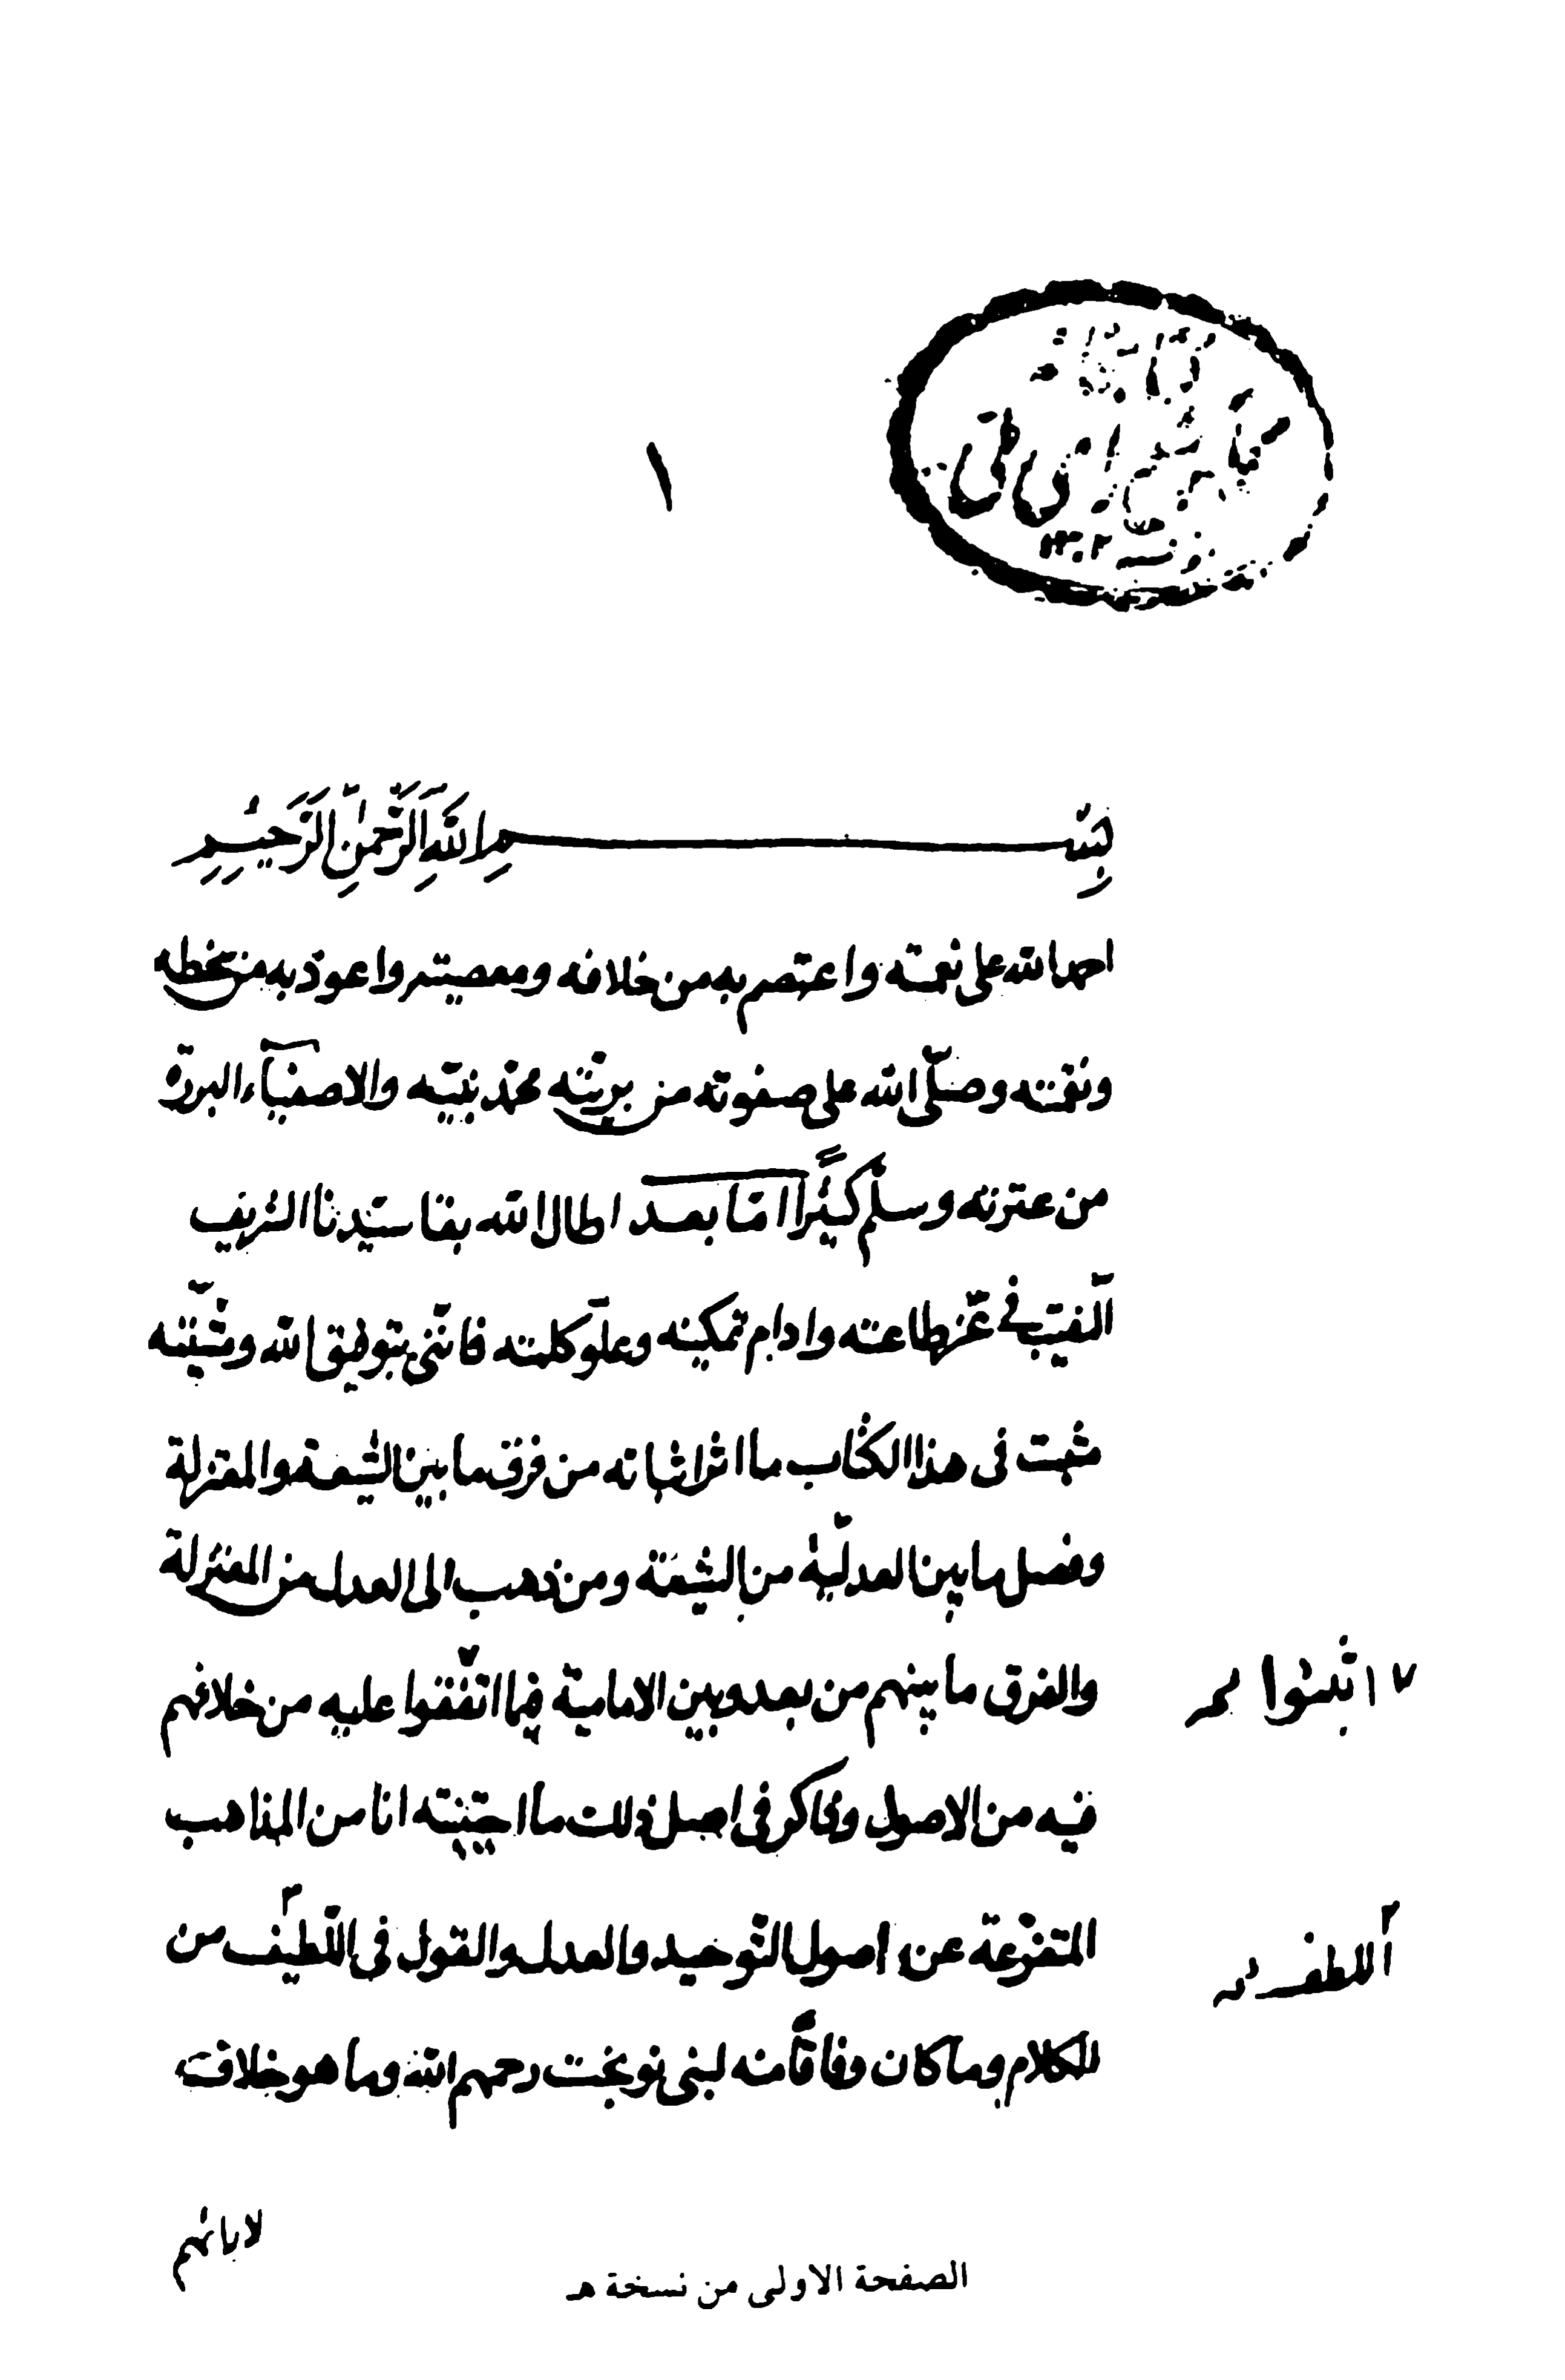 ١
بسم الله الرحمن الرحيم
احمد الله على نعمته واعتصم به من خلافه ومعصيته واعوذ به من سخطه
ونقمته وصلّى الله على صفوته من بريّته محمّد نبيّه والاصفيآء البررة
من عترته وسلّم كثيرًا امّا بعد اطال الله بقا سيّدنا الشريف
النقيب في عزّ طاعته وادام تمكينه وعلوّ كلمته فانّني بتوفيق الله ومشيّته
مثبت في هذا الكتاب ما اثر اثباته من فرق ما بين الشيعة والمعتزلة
وفصل ما بين العدليّة من الشيعة ومن ذهب الى العدل من المعتزلة
والفرق ما بينهم من بعد وبين الامامية فيما اتّفقوا عليه من خلافهم
١٧ اثبتوا
فيه من الاصول وذاكر في اصل ذلك ما اجتبيته انا من المذاهب
المتفرّعة عن اصول التّوحيد والعدل والقول في اللّطيف من
اللطف
الكلام وما كان وفاقًا منه لبني نوبخت رحمهم الله وما هو خلاف
لآبائهم
الصفحة الاولى من نسخة هـ